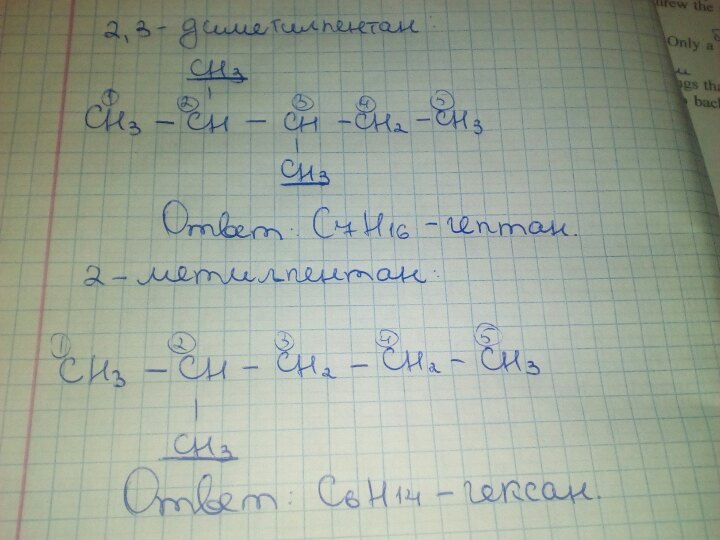 2,3 - диметилпентан:
CH3
① ② ③ ④ ⑤
CH3 - CH - CH - CH2 - CH3
CH3
Ответ: C7H16 - гептан.
2 - метилпентан:
① ② ③ ④ ⑤
CH3 - CH - CH2 - CH2 - CH3
CH3
Ответ: C6H14 - гексан.
the
Only a
back